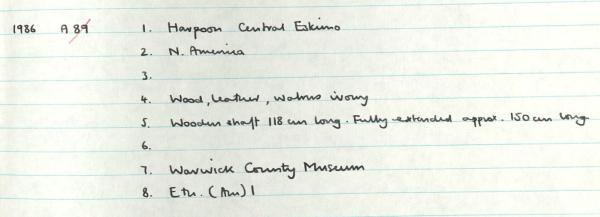 1986 A 89 1. Harpoon Central Eskimo
2. N. America
3.
4. Wood, leather, walrus ivory
5. Wooden shaft 118 cm long. Fully extended approx. 150 cm long
6.
7. Warwick County Museum
8. Eth. (Am) 1